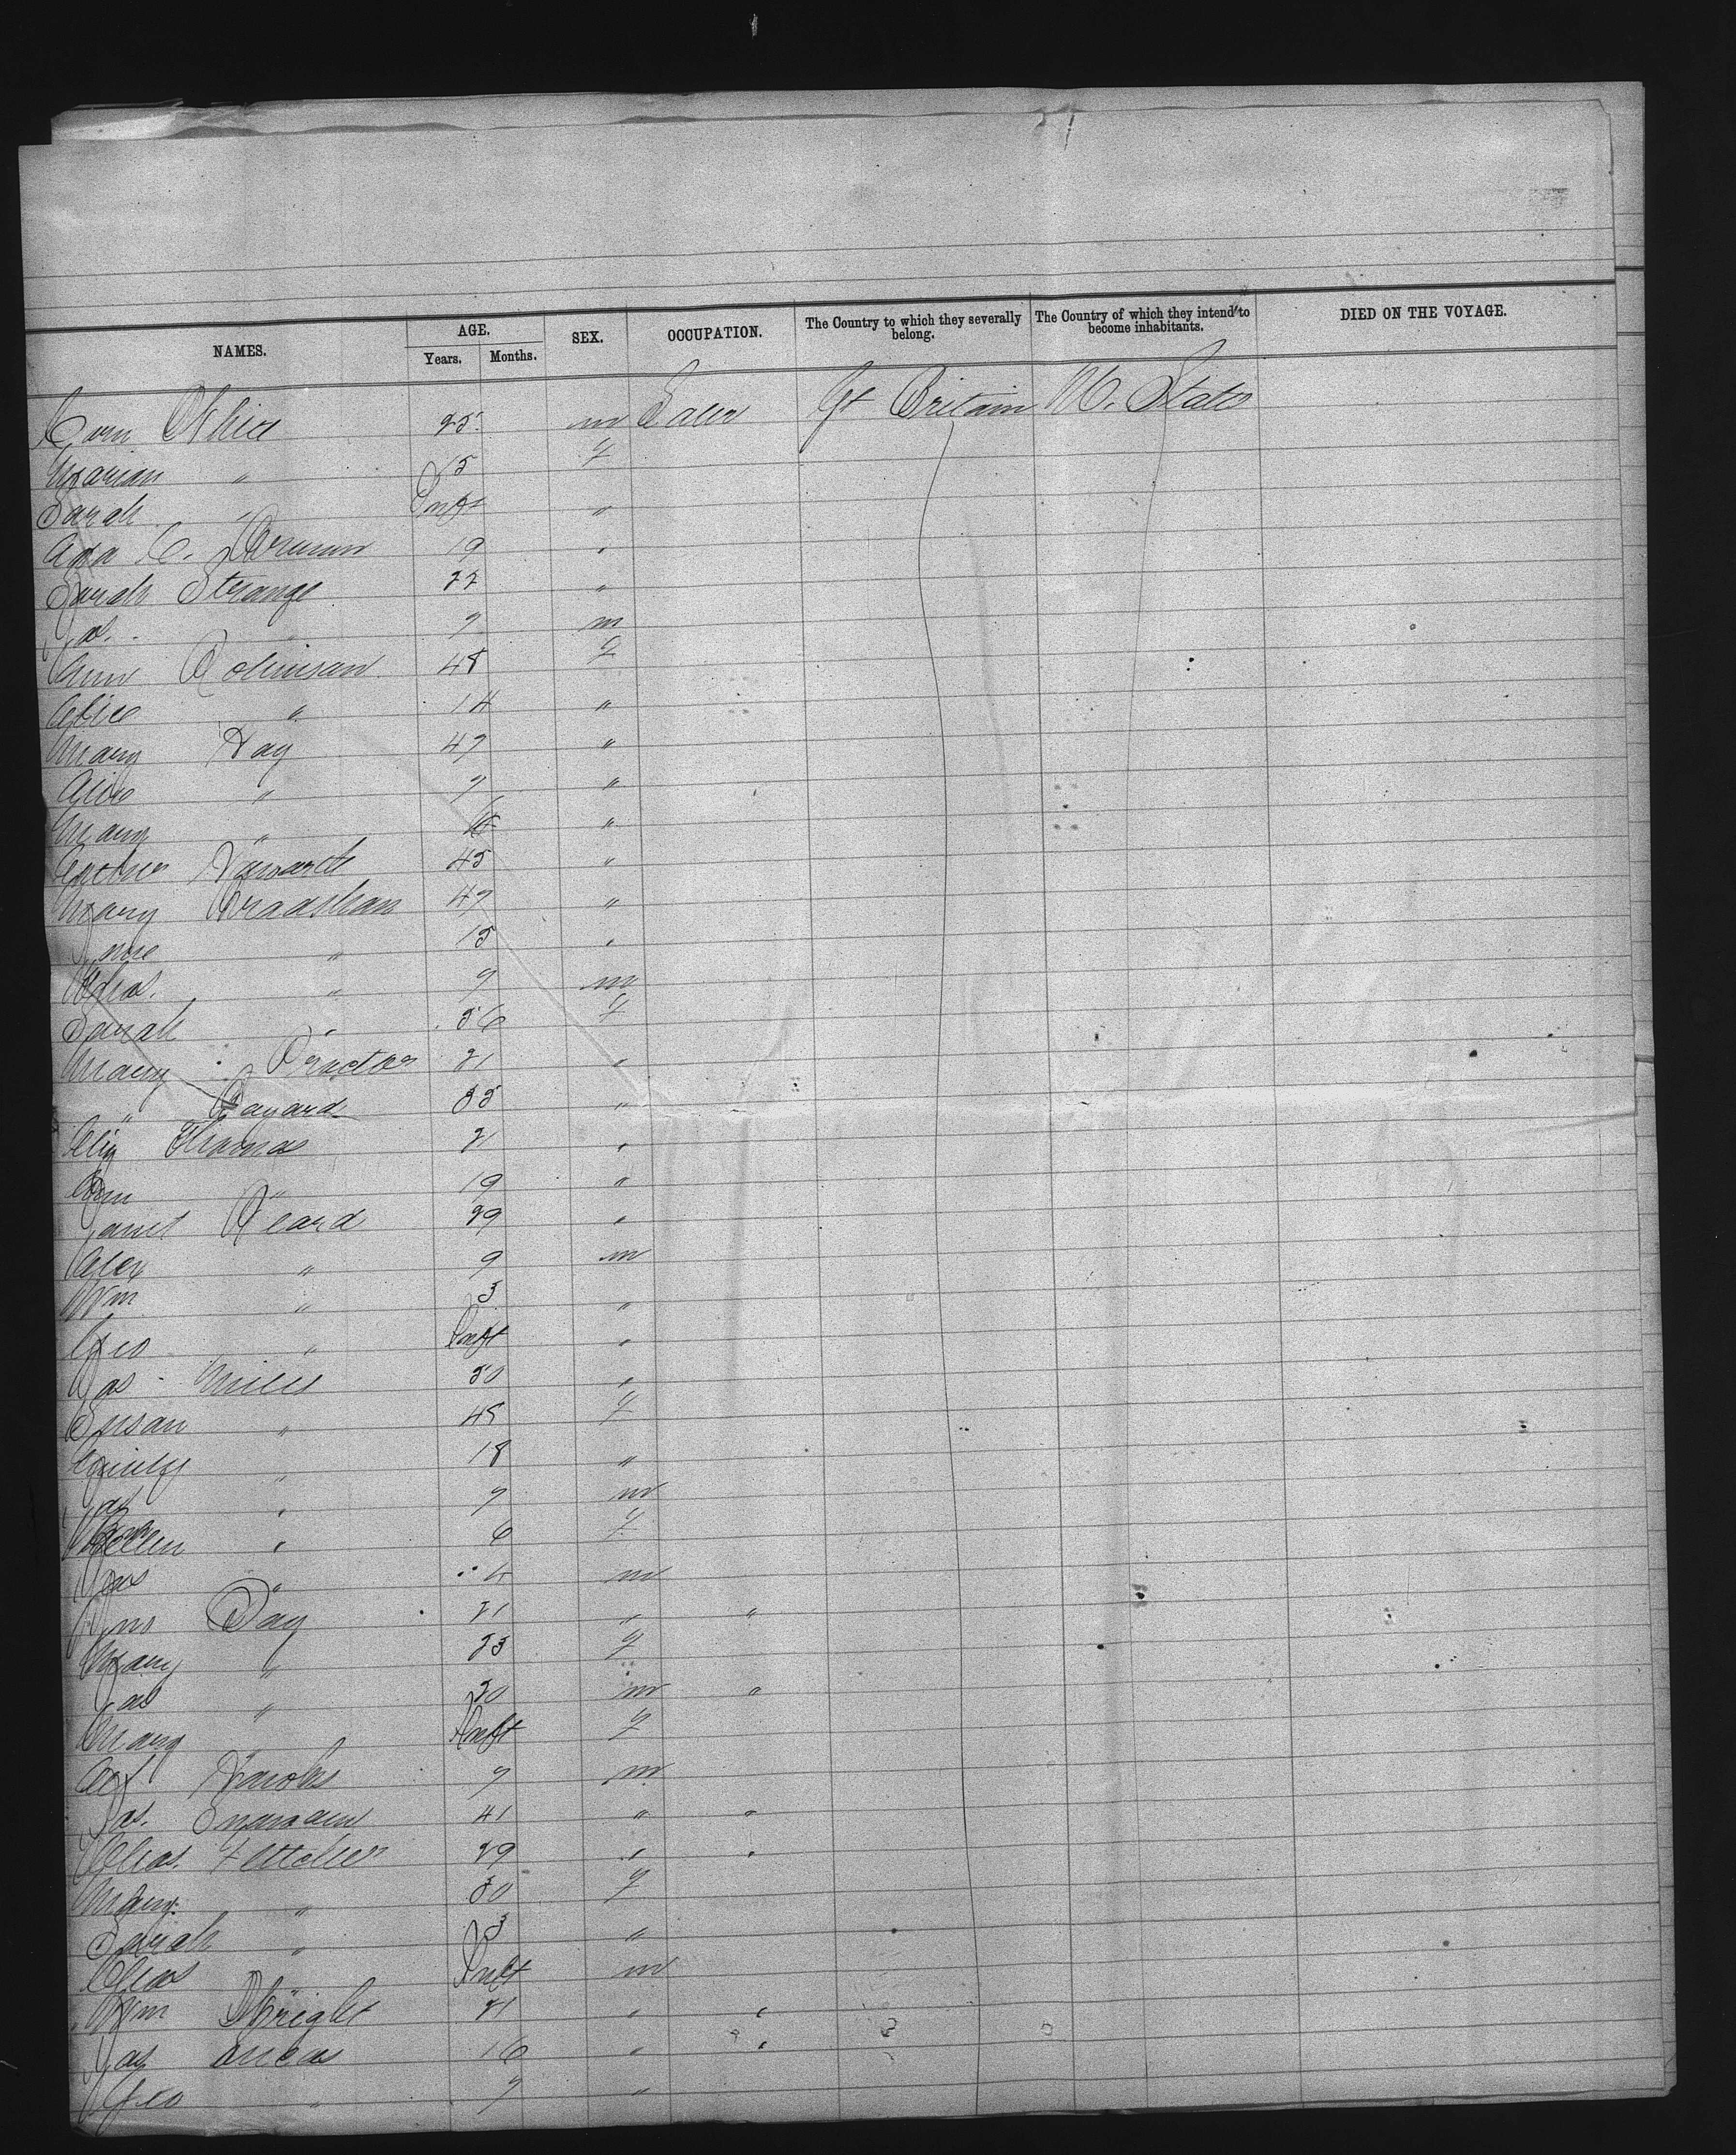 NAMES. AGE. SEX. OCCUPATION. The Country to which they severally belong. The Country of which they intend to become inhabitants. DIED ON THE VOYAGE.
Years. Months.
Corn 25 m Gt Britain U. States
Marian " 15 f
Sarah " Inft "
C. 19 "
Sarah Strange 22 "
Jas. " 9 m
Ann Robinson 48 f
Alice " 14 "
Mary Hay 47 "
Alice " 9 "
Mary " "
Esther Howarth 45 "
Mary Bradshaw 47 "
Jane " 15 "
Chas. " 9 m
Sarah " 56 f
Mary Proctor 21 "
" 35 "
Eliz Thomas 21 "
Em " 19 "
Janet Heard 29 "
Alex " 9 m
Wm " 3 "
Geo " Inft "
Jas Miles 50 "
Susan " 45 f
Emily " 18 "
Jas " 9 m
Ellen " 6 f
" 4 m
Jno Day 21 " "
Mary " 23 f
Jas " 20 m "
Mary " Inft f
9 m
Jas. 41 " "
Chas. Fletcher 29 " "
Mary " 30 f
Sarah " 3 "
Chas Inft m
Wm Wright 21 " "
Jas Lucas 16 " "
Geo " 9 "